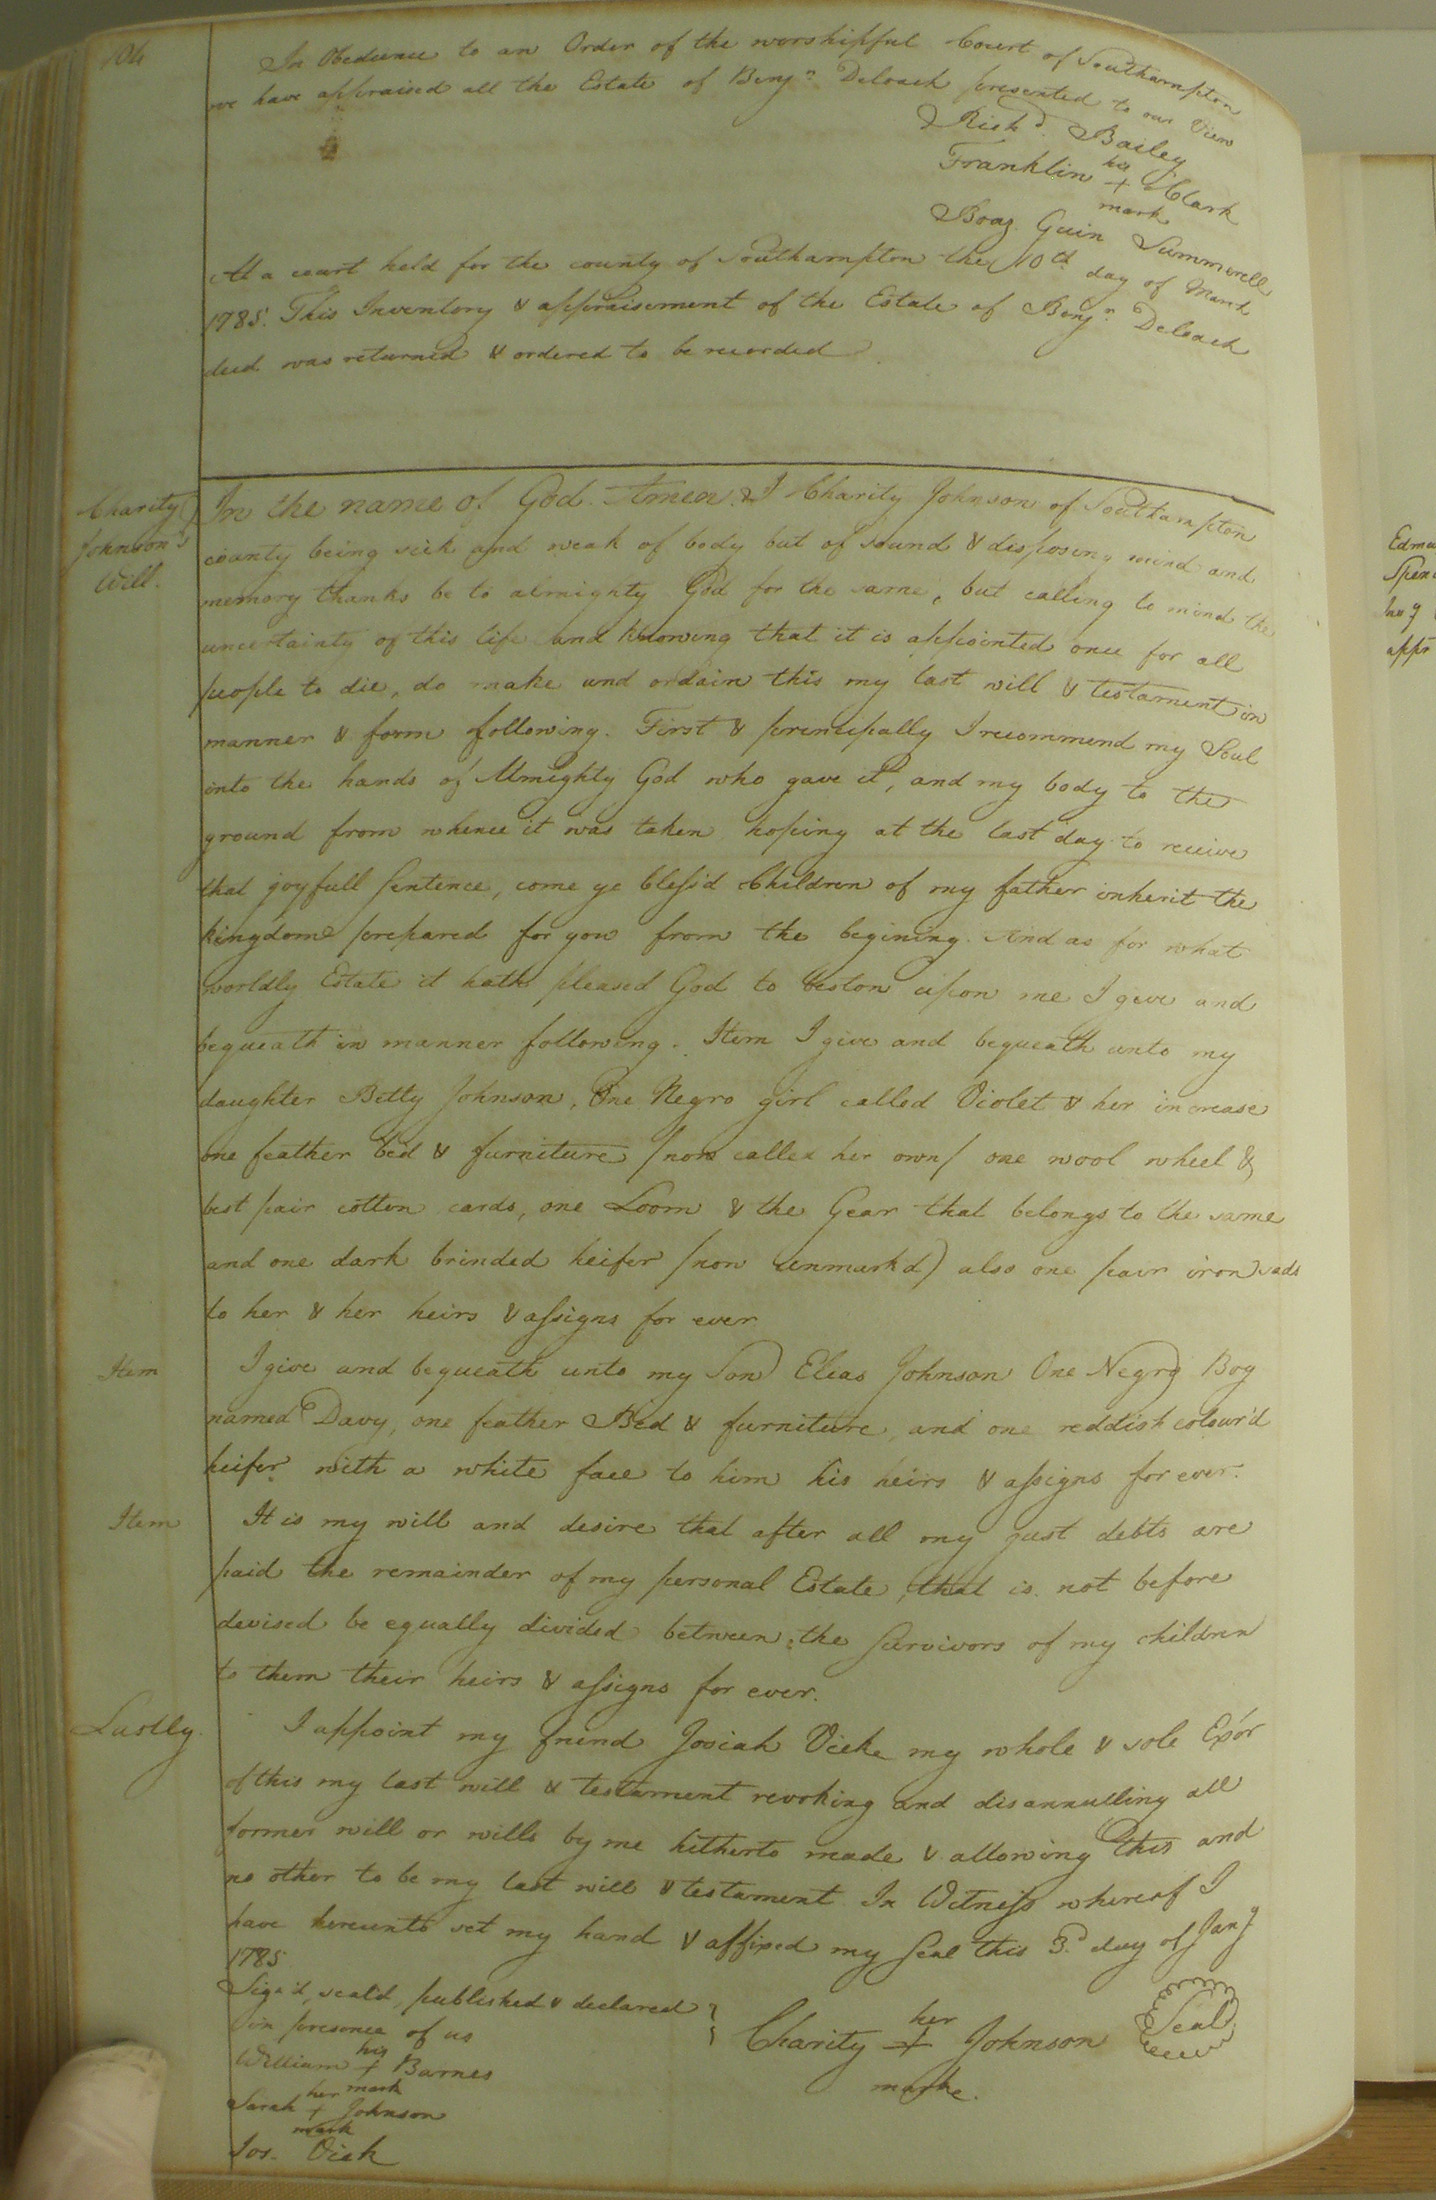 104
In Obedience to an Order of the worshipful Court of Southampton
we have appraised all the Estate of Benjn Deloach presented to our View
Richd. Bailey
his
Franklin + Clark
mark
Boaz Guin Summerell
At a court held for the county of Southampton the 10th day of March
1785. This Inventory & appraisement of the Estate of Benjn Deloach
decd was returned & ordered to be recorded
Charity
Johnson's
Will.
In the name of God Amen. I Charity Johnson of Southampton
county being sick and weak of body but of sound & disposing mind and
memory thanks be to almighty God for the same, but calling to mind the
uncertainty of this life and knowing that it is appointed once for all
people to die, do make and ordain this my last will & testament in
manner & form following. First & principally I recommend my Soul
into the hands of Almighty God who gave it, and my body to the
ground from whence it was taken hoping at the last day to receive
that joyfull Sentence, come ye bless'd Children of my father inherit the
kingdom prepared for you from the begining. And as for what
worldly Estate it hath pleased God to bestow upon me I give and
bequeath in manner following. Item I give and bequeath unto my
daughter Betty Johnson, One Negro girl called Violet & her increase
one feather bed & furniture /now called her own/ one wool wheel &
best pair cotton cards, one Loom & the Gear that belongs to the same
and one dark brinded heifer /now unmark'd) also one pair iron
to her & her heirs & assigns for ever
Item
I give and bequeath unto my Son Elias Johnson One Negro Boy
named Davy, one feather Bed & furniture, and one reddish colour'd
heifer with a white face to him his heirs & assigns for ever.
Item
It is my will and desire that after all my just debts are
paid the remainder of my personal Estate, that is not before
devised be equally divided between the Survivors of my children
to them their heirs & assigns for ever.
Lastly.
I appoint my friend Josiah Vick my whole & sole Exor
of this my last will & testament revoking and disannulling all
former will or wills by me hitherto made & allowing this and
no other to be my last will & testament In Witness whereof I
have hereunto set my hand & affixed my Seal this 3d day of Jany
1785
Sign'd, seal'd, published & declared
in presence of us
her
Charity + Johnson
marke.
Seal
his
William + Barnes
mark
her
Sarah + Johnson
mark
Jos. Vick
Edmu
Spen
appr